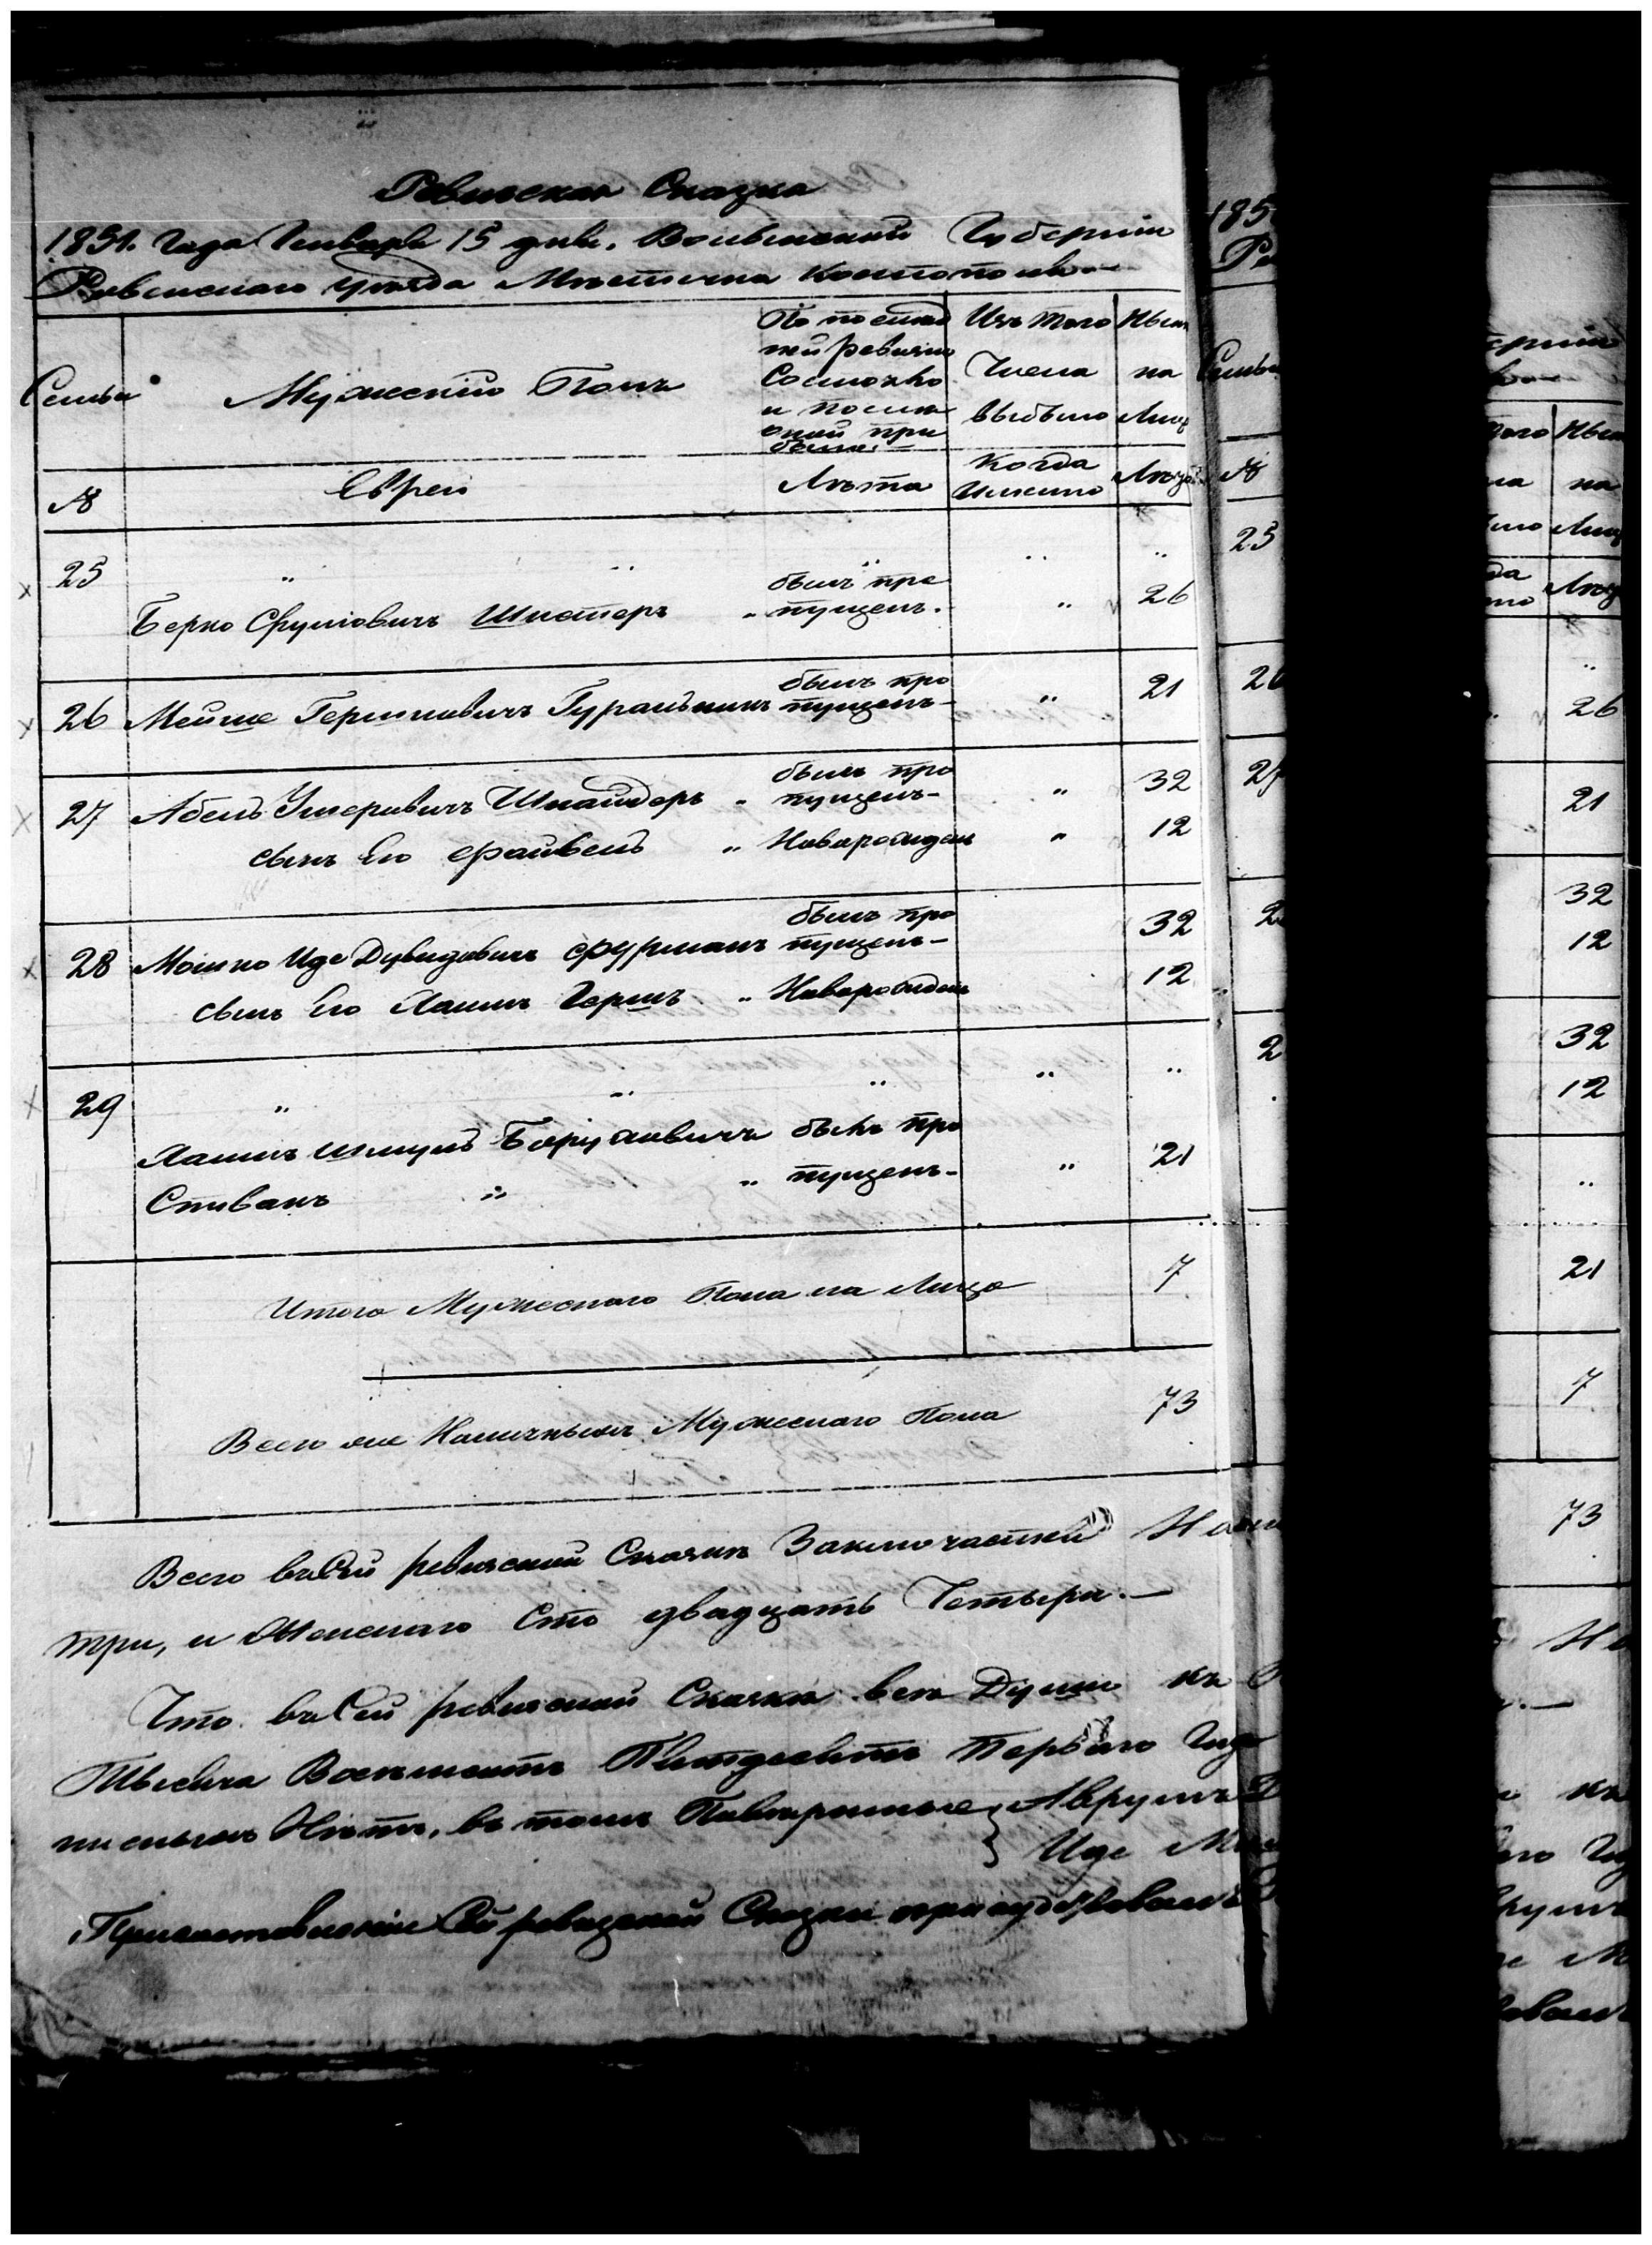 Ревизская Сказка
1851. Года Генваря 15 дня. Волынской Губернии
Ровенскаго Уезда Местечка Костополя
Семьи
Мужеский Полъ
По послед
ней ревизии
Состояло
и после
оной при
было.
Изъ того
Числа
выбыло
Ныне
на
Лицо
№
Евреи
Лѣта
Когда
Именно
Лѣта
25 " " " " "
Берко Срулiовичъ Шпетеръ " былъ про пущенъ. " 26
26 Мейше Гершковичъ Гуральникъ былъ про пущенъ " 21
27 Абель Ушеровичъ Шнайдеръ " былъ про пущенъ " 32
сынъ Его Файвель " Новорожденъ " 12
28 Мошко Иде Дувидовичъ Фурманъ былъ про пущенъ 32
сынъ Его Хаимъ Гершъ " Новорожденъ 12
29 " " " " "
Хаимъ Шмуль Боруховичъ былъ про
Спивакъ " " пущенъ " 21
Итого Мужескаго Пола на Лицо 7
Всего же Наличныхъ Мужескаго Пола 73
Всего въ Сей ревизской Сказке Заключается
три, и Женскаго Сто двадцать Четыри.
Что въ Сей ревизской Сказке все Души къ
Тысяча Восемьсотъ Пятдесятъ Перваго Года
Нѣтъ, въ томъ Аврумъ
Иде
Сей ревизской Сказки